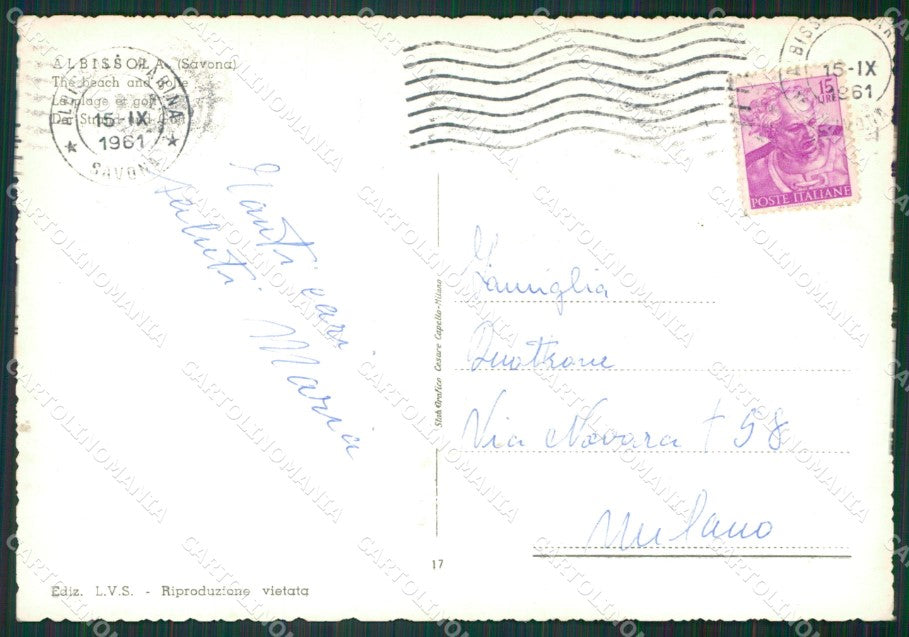 ALBISSOLA (Savona)
The beach and
La plage et golf
Der Strand und
ALBISSOLA MARINA
15-IX
1961
SAVONA
15-IX
1961
15
LIRE
POSTE ITALIANE
Tanti cari
saluti
Maria
Famiglia
Quatrone
Via Novara 58
Milano
Stab. Grafico Cesare Capello-Milano
17
Ediz. L.V.S. - Riproduzione vietata
CARTOLINOMANIA